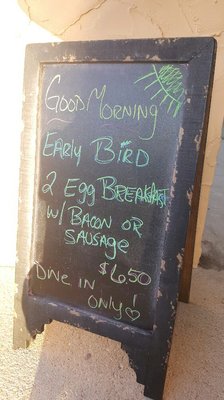 Good Morning
Early Bird
2 Egg Breakfast
w/ Bacon or
Sausage
$6.50
Dine in
only!